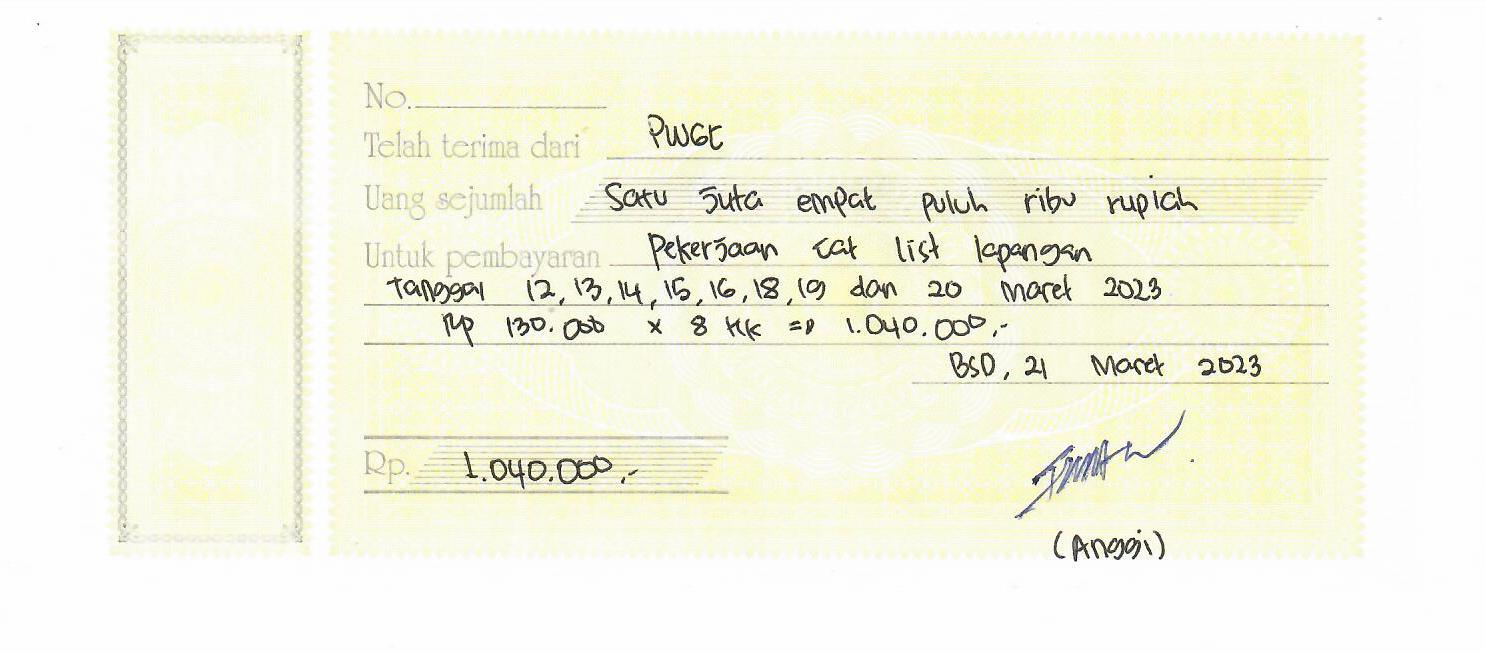 No.
Telah terima dari PWGC
Uang sejumlah Satu Juta empat puluh ribu rupiah
Untuk pembayaran Pekerjaan cat list lapangan
Tanggal 12, 13, 14, 15, 16, 18, 19 dan 20 Maret 2023
Rp 130.000 x 8 HK => 1.040.000,-
BSD, 21 Maret 2023
Rp. 1.040.000,-
(Anggi)